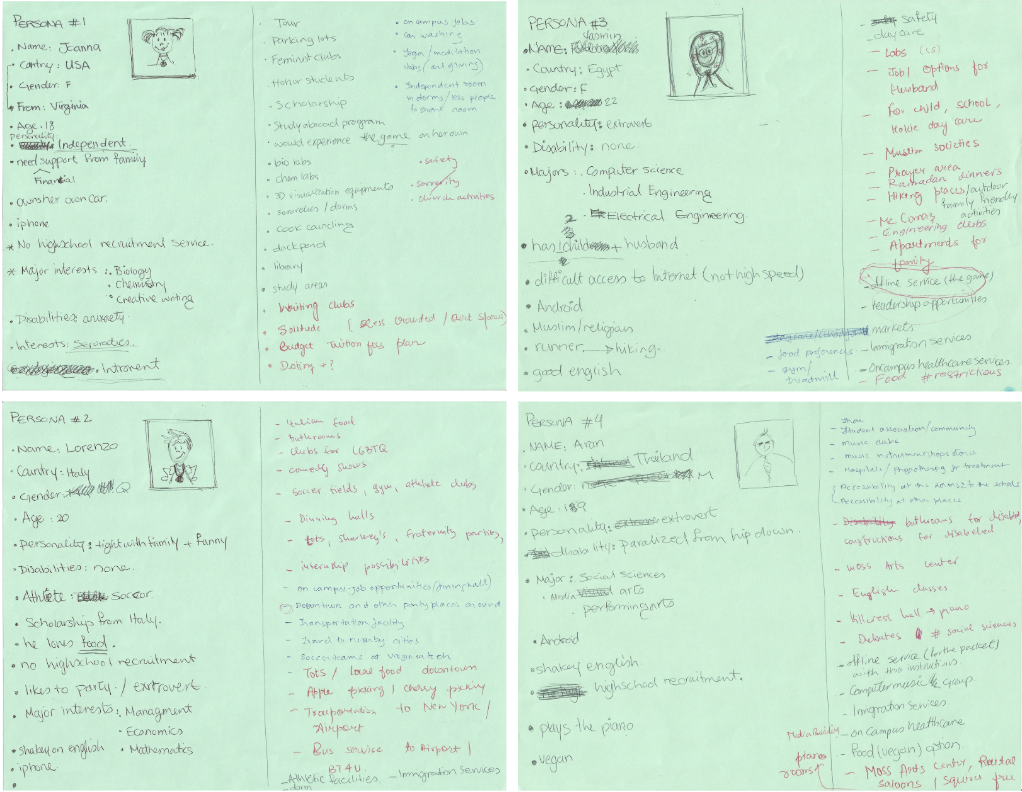 PERSONA #1
• Name: Joanna
• Country: USA
• Gender: F
• From: Virginia
• Age: 18
Personality:
Independent
• need support from family
Financial
• owns her own car.
• iphone
* No highschool recruitment service.
* Major interests: • Biology
• Chemistry
• Creative writing
• Disabilities: anxiety
• Interests: Sororities.
• Introvert
• Tour
• Parking lots
• Feminist clubs
• Honor students
• Scholarship
• Study abroad program
• would experience the game on her own
• bio labs
• chem labs
• 3D visualization equipments
• sororities / dorms
• cook counciling
• duck pond
• library
• study areas
• Writing clubs
• Solitude [ less crowded / quiet spaces ]
• Budget Tuition fees plan
• Dating +?
• on campus jobs
• car washing
• Yoga / meditation
• Independent room in dorms / less people to share room
• safety
• sorority
• Outside activities
PERSONA #3
Yasmin
• Name:
• Country: Egypt
• Gender: F
• Age: 22
• personality: extrovert
• Disability: none
• Majors: • Computer Science
• Industrial Engineering
• Electrical Engineering
2
• has child + husband
• difficult access to Internet (not high speed)
• Android
• Muslim/religious
• runner → hiking
• good english
- safety
- day care
- Labs (CS)
- Job / Options for Husband
- For child, school, day care
- Muslim societies
- Prayer area
- Ramadan dinners
- Hiking places/outdoor
family friendly activities
- McComas
- Engineering clubs
- Apartments for family
- offline service (the game)
- leadership opportunities
- markets
- food preferences
- Immigration services
- gym / treadmill
- Oncampus healthcare services
- Food # restrictions
PERSONA #2
• Name: Lorenzo
• Country: Italy
• Gender: Q
• Age: 20
• personality: tight with family + funny
• Disabilities: none.
• Athlete: Soccor
• Scholarship from Italy.
• he loves food.
• no highschool recruitment
• likes to party / extrovert
• Major interests: • Managment
• Economics
• shakey on english • Mathematics
• iphone
- Italian food
- bathrooms
- clubs for LGBTQ
- comedy shows
- Soccer fields, gym, athlete clubs
- Dinning halls
- tots, sharkey's, fraternity parties,
- internship possibilities
- on campus job opportunities (dining hall)
- Downtown and other party places around
- Transportation facility
- travel to nearby cities
- Soccer teams at Virginia tech
- Tots / local food downtown
- Apple picking / cherry picking
- Transportation to New York / Airport
- Bus service to Airport / BT4U.
- Athletic facilities - Immigration Services
PERSONA #4
• NAME: Aran
• Country: Thailand
• Gender: M
• Age: 19
• Personality: extrovert
disability: paralized from hip down.
• Major: Social Sciences
• Media arts
• performing arts
• Android
• shakey english
• highschool recruitment.
• plays the piano
• vegan
- Student association/community
- music clubs
- music instrument shops
- Hospitals / Physiotherapy for treatment
- Accessibility at other places
- bathrooms for disabled
constructions for disabeled
- Moss Arts Center
- English classes
- Hillcrest hall → piano
- Debates # social sciences
- offline service (for the packet)
with the instructions.
- Computer music & group
- Immigration services
- on campus healthcare
- Food (vegan) option.
Media Building
piano rooms
- Moss Arts Center, Recital saloons / Squires free